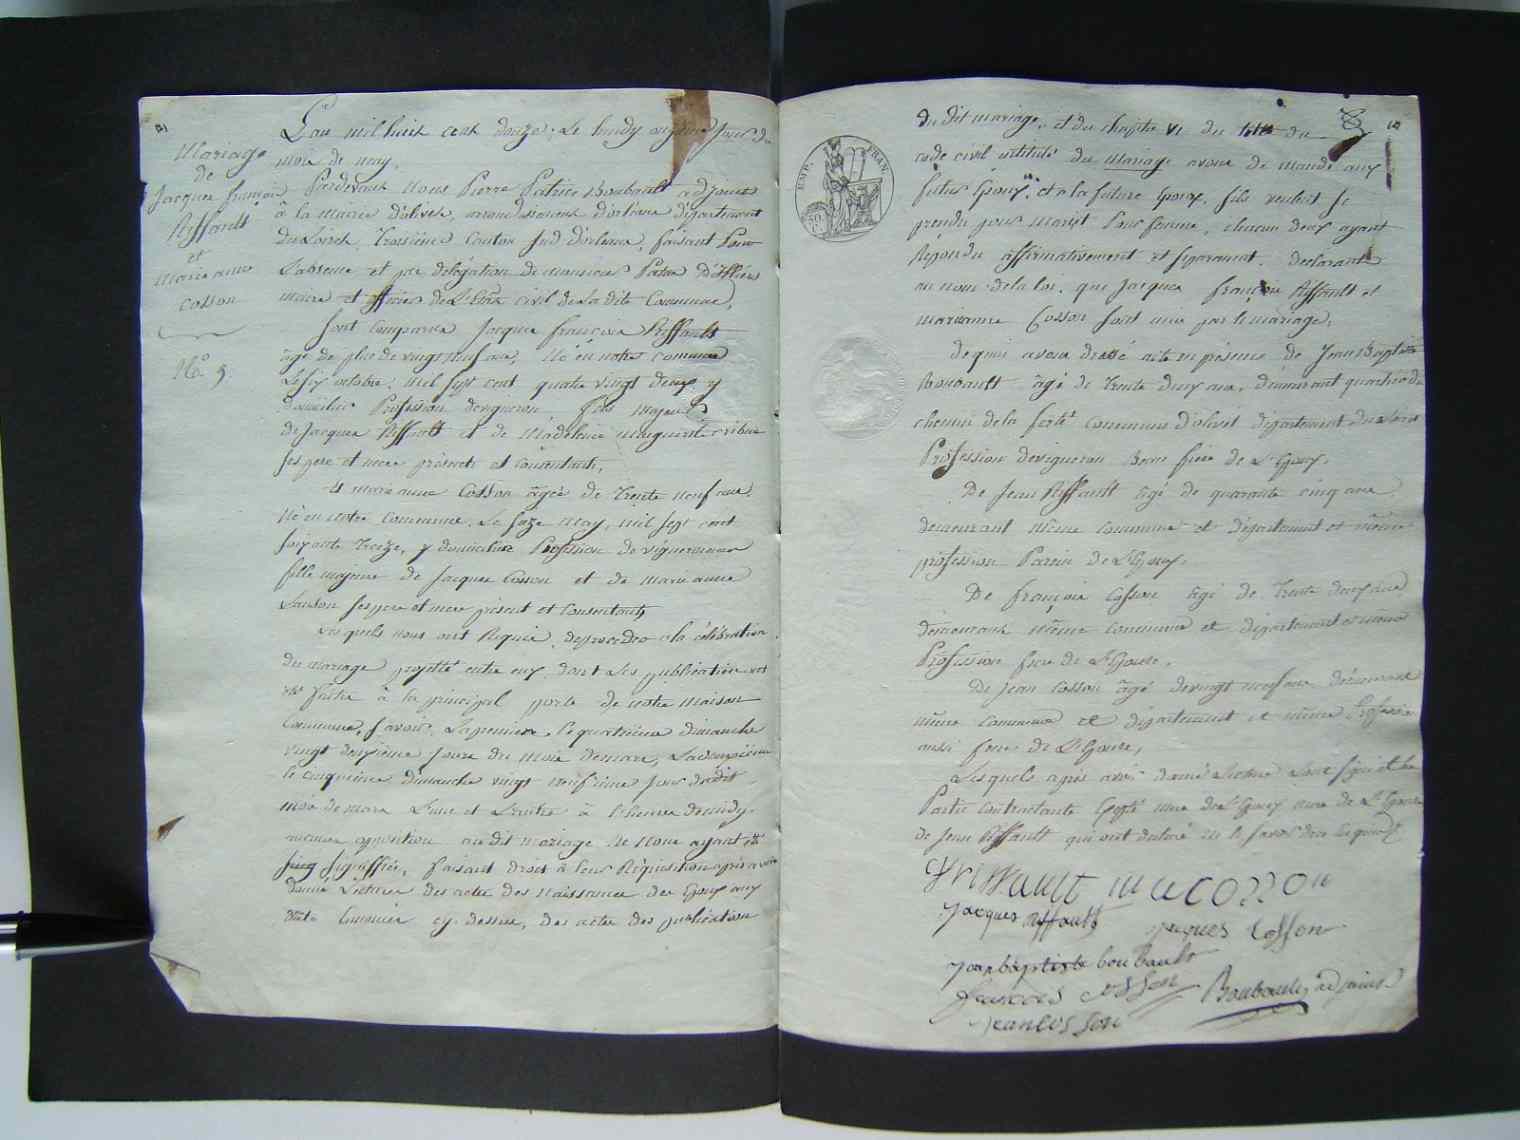 Mariage
de
Jacque françois
Riffault
et
Marie anne
Cosson
No. 5
L'an mil huit cent douze. Le lundy onzieme Jour du
mois de may,
Pardevant Nous Pierre Patrice Boubault adjoint
à la Mairie d'olivet, arrondissement d'orléans département
du Loiret, Troisième Canton Sud d'orleans, faisant Pour
L'absence et par délégation de monsieur
maire et officier de L'état civil de La dite Commune,
Sont Comparus Jacque françois Riffault
âgé de plus de vingt neuf ans, Né en notre commune
Le six octobre, mil sept cent quatre vingt deux y
domicilié Profession de vigneron, fils majeur
de Jacque Riffault et de Madeleine marguerite
ses pere et mere présents et Consentants,
et marie anne Cosson âgée de Trente neuf ans
Né en Notre Commune. Le seize May, mil sept cent
soixante Treize, y domiciliée Profession de vigneronne
fille majeure de Jacque Cosson et de marie anne
ses pere et mere présent et Consentants
Lesquels nous ont Requis de procéder à la célébration
du mariage projetté entre eux dont Les publication ont
été faitte à la principal porte de notre Maison
Commune, savoir, La premiere, le quatrième dimanche
vingt deuxième jour du Mois de mars, La deuxieme
le cinquième dimanche vingt neufième jour du dit
mois de mars L'une et L'autre à l'heure de midy.
aucune opposition au dit mariage Ne Nous ayant été
signiffiée, faisant droit à Leur Réquisition après avoir
donné Lecture des actes des Naissances des Epoux aux
cy-dessus, des actes des publication
EMP. FRAN.
50 C.
du dit mariage, et du chapitre VI du titre du
code civil intitulé du Mariage avons de mandé aux
futur Epoux, et à la future Epoux, s'ils veulent se
prendre pour Mari et Pour femme, chacun deux ayant
Répondu affirmativement et séparament. déclarant
au nom de la loi, que Jacque françois Riffault et
marianne Cosson sont unis par le mariage,
de quoi avons dressé acte en présence de Jean Baptiste
Boubault âgé de Trente deux ans, demeurant quartier du
chemin de la ferté Commune d'olivet département du Loiret
Profession de vigneron Beau frère de L'Epoux.
De Jean Riffault âgé de quarante cinq ans
demeurant Même Commune et département et même
profession Parein de L'Epoux.
De françois Cosson âgé de Trente deux ans
demeurant Même commune et département et même
Profession frere de L'Epouse.
De Jean Cosson âgé de vingt neuf ans demeurant
même Commune et département et même Profession
aussi frere de L'Epouse,
Lesquels après avoir donné Lecture L'ont signé et les
Partie contractante Excepté mere de L'Epoux mere de L'Epouse
de Jean Riffault qui ont declaré Ne le savoir
J f riffault m a cosson
jacques Riffault jaques Cosson
jean baptiste boubault
francois cosson Boubault, adjoint
jean cosson